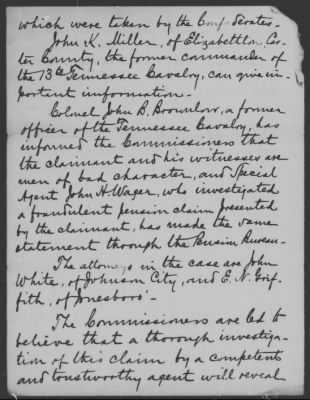 which were taken by the Confederates.
John K. Miller, of Elizabethton, Car-
ter County, the former commander of
the 13th Tennessee Cavalry, can give im-
portant information.
Colonel John B. Brownlow, a former
officer of the Tennessee Cavalry, has
informed the Commissioners that
the claimant and his witnesses are
men of bad character, and Special
Agent John H. Wager, who investigated
a fraudulent pension claim presented
by the claimant, has made the same
statement through the Pension Bureau.
The attorneys in the case are John
White, of Johnson City, and E. N. Grif-
fith, of Jonesboro'.
The Commissioners are led to
believe that a thorough investiga-
tion of this claim by a competent
and trustworthy agent will reveal